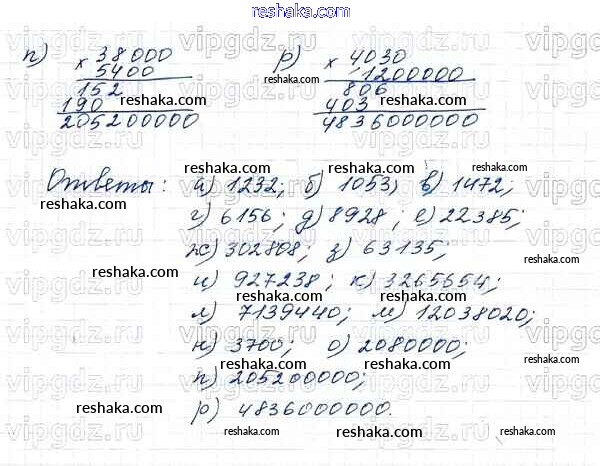 reshaka.com
п) × 38000 р) × 4030
5400 1200000
152 806
190 403
205200000 4836000000
Ответы: а) 1232; б) 1053; в) 1472;
г) 6156; д) 8928; е) 22385;
ж) 302808; з) 63135;
и) 927238; к) 3265654;
л) 7139440; м) 12038020;
н) 3700; о) 2080000;
п) 205200000;
р) 4836000000.
reshaka.com